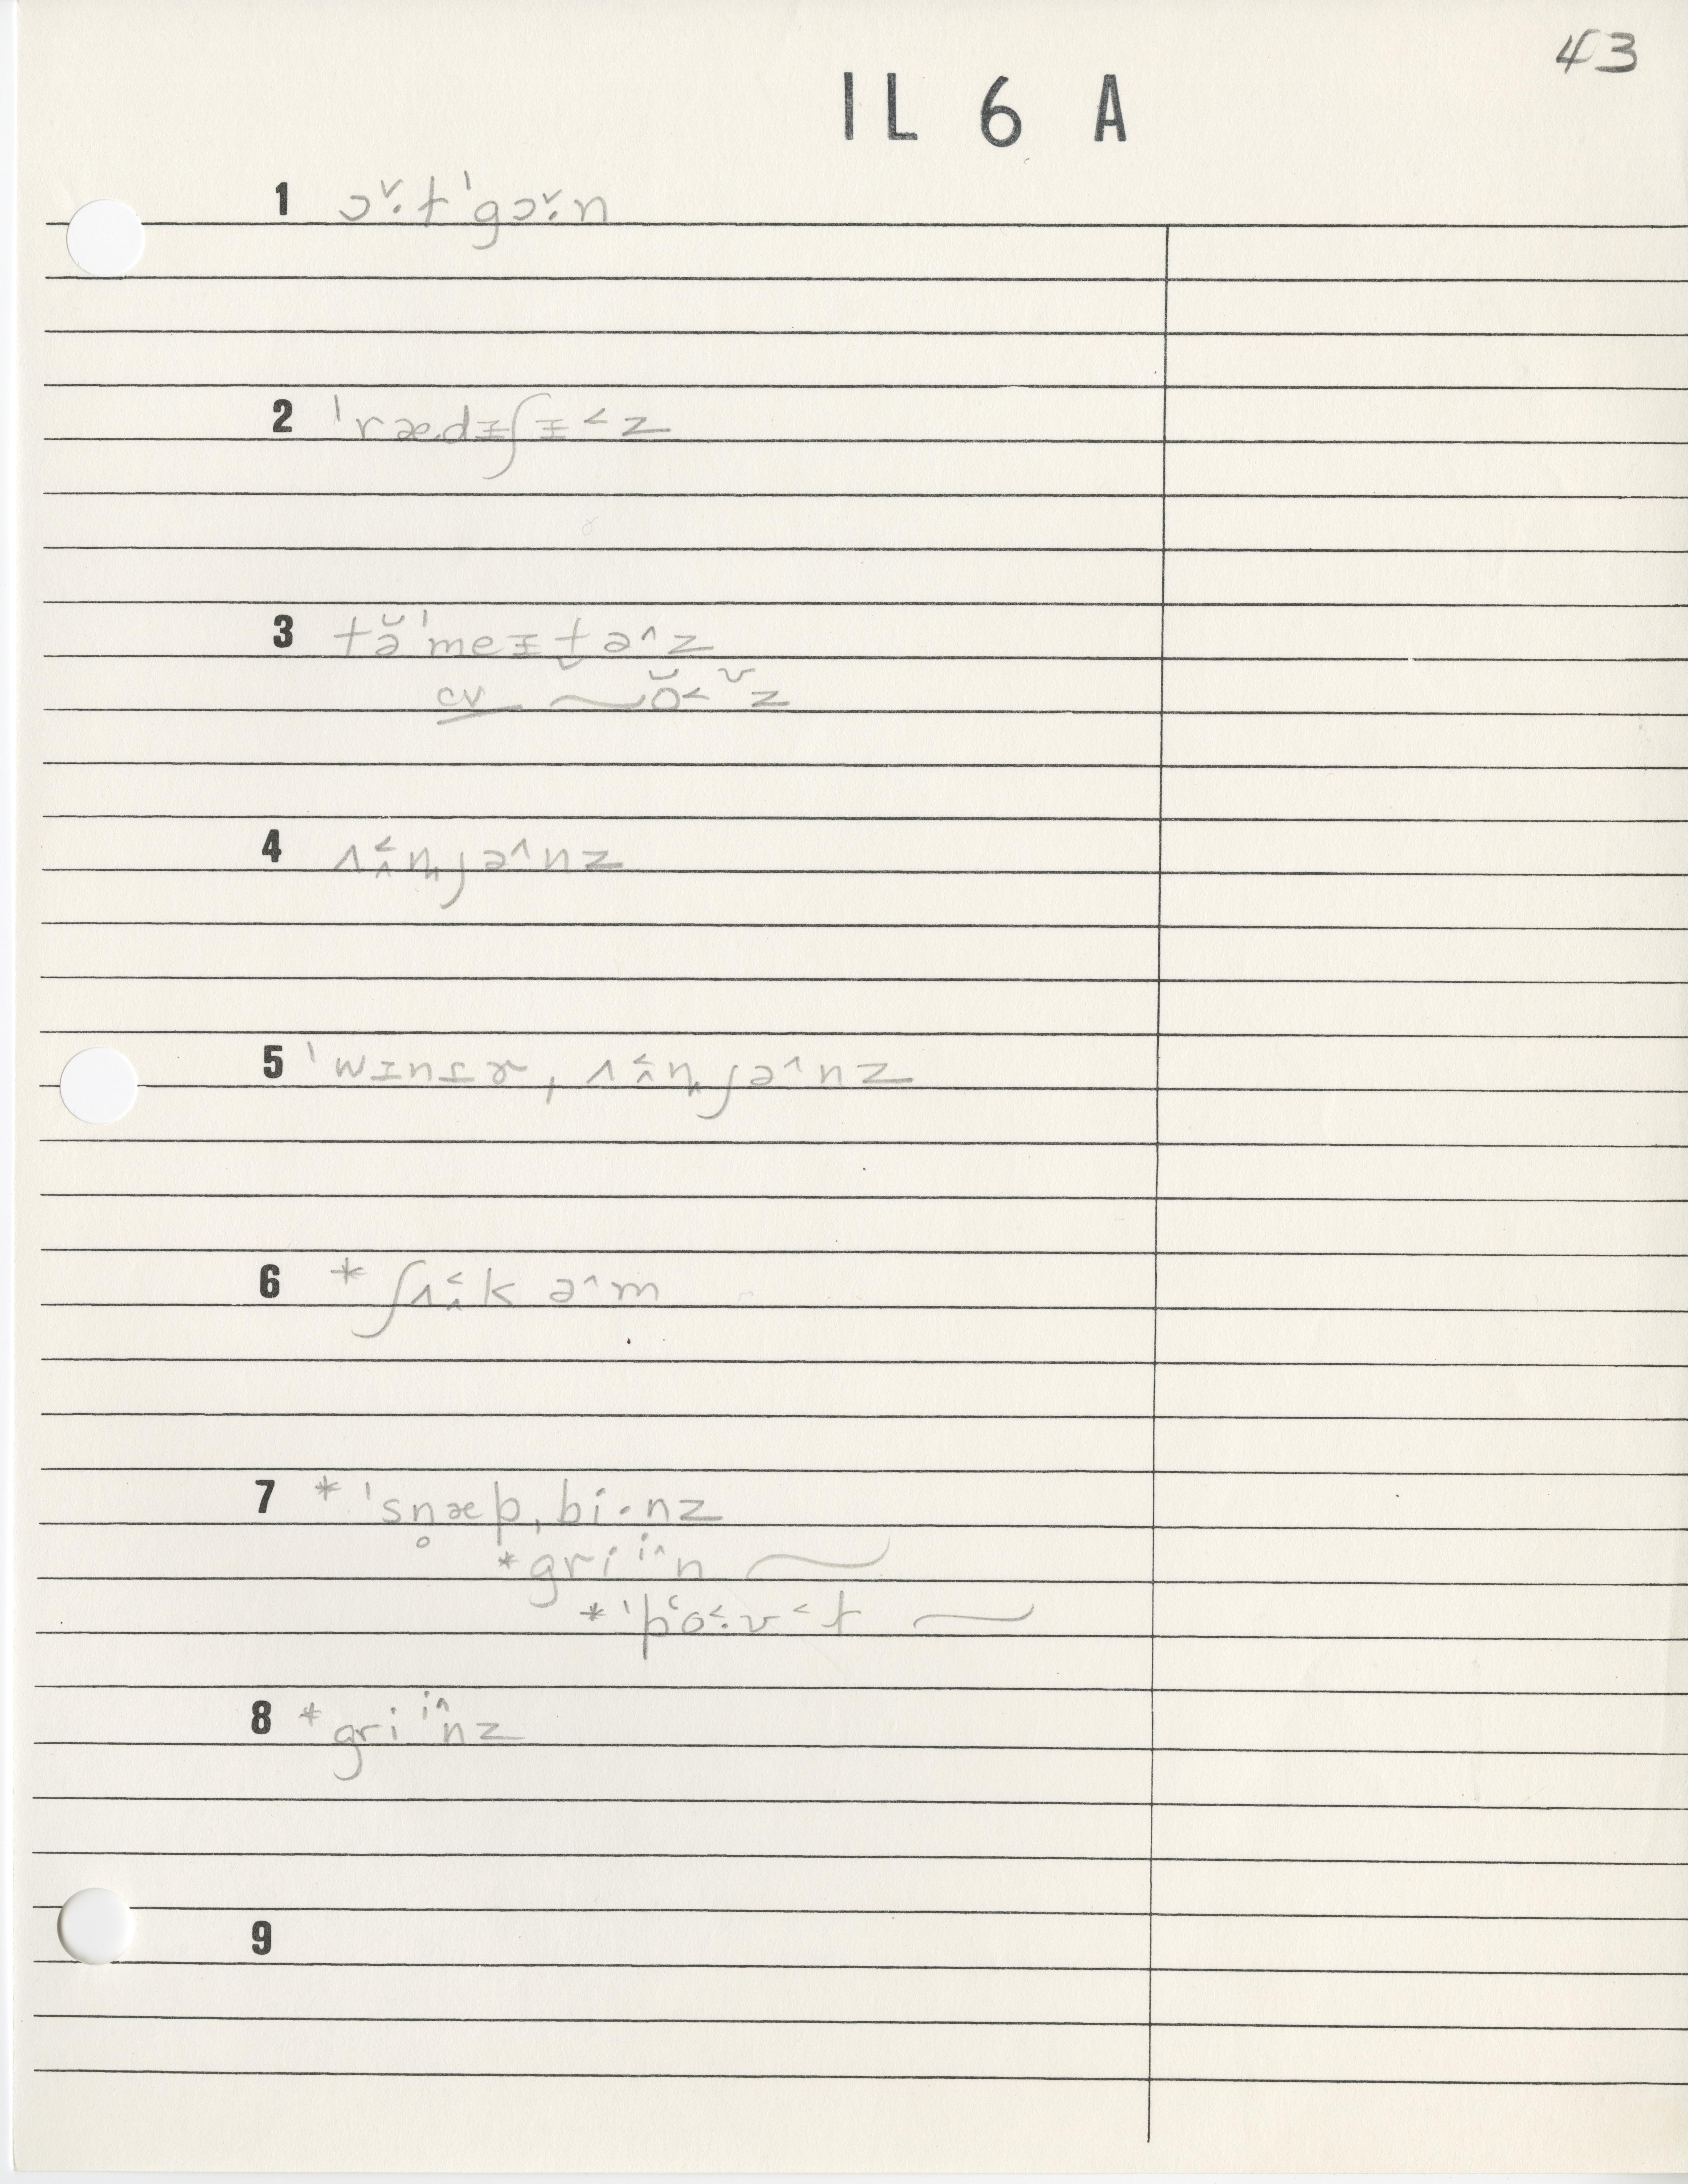 43
IL 6 A
1 ɔ˅·t ˈgɔ˅·n
2 ˈrædɪʃɪ˂z
3 tə̆ˈmeɪt̬ə˄z
cv ~ŏ˂ ˇz
4 ʌ˂˰n̡jə˄nz
5 ˈwɪntɚˌʌ˂˰n̡jə˄nz
6 * ʃʌ˂˰k ə˄m
7 * ˈsn̥æpˌbi·nz
* gri i˄n ~
* ˈpʻo˂·ʊ˂t ~
8 * gri i˄nz
9